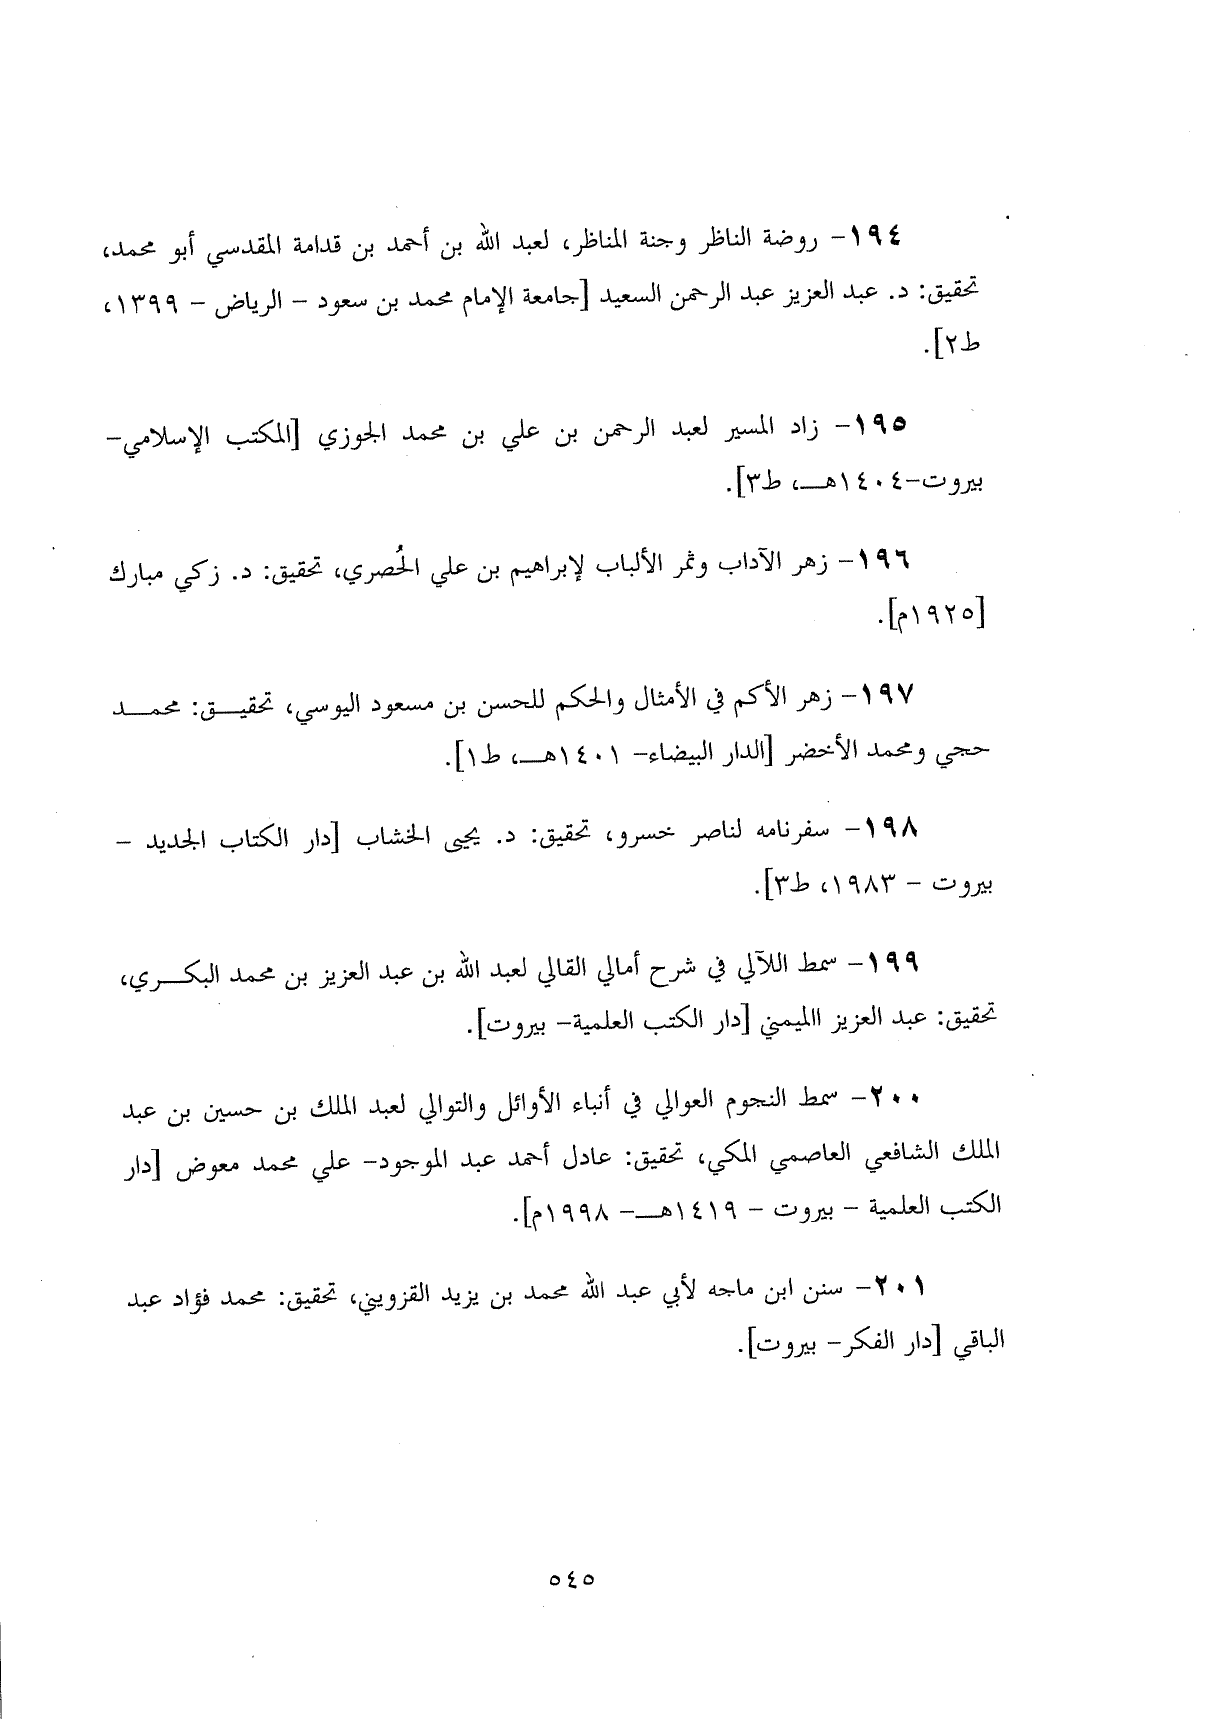 ١٩٤- روضة الناظر وجنة المناظر، لعبد الله بن أحمد بن قدامة المقدسي أبو محمد،
تحقيق: د. عبد العزيز عبد الرحمن السعيد [جامعة الإمام محمد بن سعود - الرياض - ١٣٩٩،
ط٢].
١٩٥- زاد المسير لعبد الرحمن بن علي بن محمد الجوزي [المكتب الإسلامي-
بيروت-١٤٠٤هــ، ط٣].
١٩٦- زهر الآداب وثمر الألباب لإبراهيم بن علي الحُصري، تحقيق: د. زكي مبارك
[١٩٢٥م].
١٩٧- زهر الأكم في الأمثال والحكم للحسن بن مسعود اليوسي، تحقيـــق: محمــــد
حجي ومحمد الأخضر [الدار البيضاء- ١٤٠١هــ، ط١].
١٩٨- سفرنامه لناصر خسرو، تحقيق: د. يحيى الخشاب [دار الكتاب الجديد -
بيروت - ١٩٨٣، ط٣].
١٩٩- سمط اللآلي في شرح أمالي القالي لعبد الله بن عبد العزيز بن محمد البكــري،
تحقيق: عبد العزيز االميمني [دار الكتب العلمية- بيروت].
٢٠٠- سمط النجوم العوالي في أنباء الأوائل والتوالي لعبد الملك بن حسين بن عبد
الملك الشافعي العاصمي المكي، تحقيق: عادل أحمد عبد الموجود- علي محمد معوض [دار
الكتب العلمية - بيروت - ١٤١٩هــ- ١٩٩٨م].
٢٠١- سنن ابن ماجه لأبي عبد الله محمد بن يزيد القزويني، تحقيق: محمد فؤاد عبد
الباقي [دار الفكر- بيروت].
٥٤٥